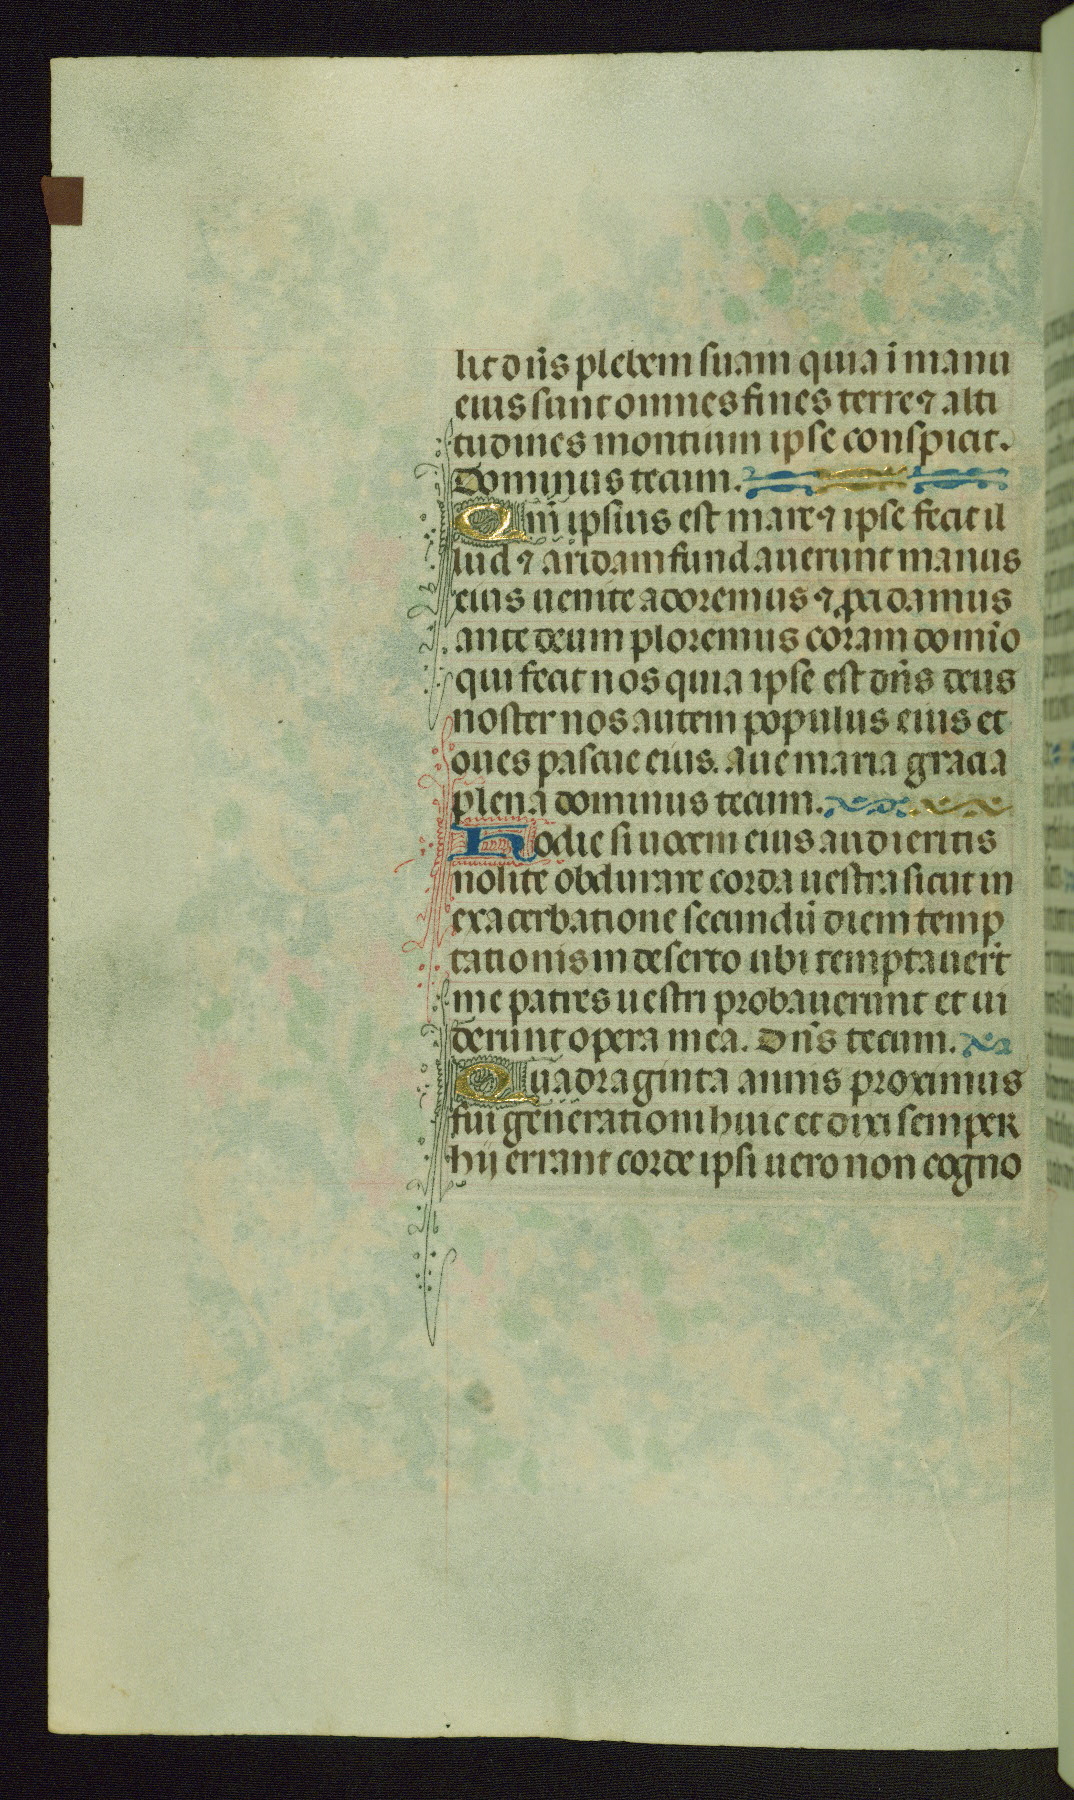 lit dñs plebem suam quia i manu
eius sunt omnes fines terre ⁊ alti
tudines montium ipse conspicit.
Dominus tecum.
Qm̄ ipsius est mare ⁊ ipse fecit il
lud ⁊ aridam fundauerunt manus
eius uenite adoremus ⁊ ꝓcidamus
ante deum ploremus coram domīo
qui fecit nos quia ipse est dñs deus
noster nos autem populus eius et
oues pascue eius. aue maria gracia
plena dominus tecum.
Hodie si uocem eius audieritis
nolite obdurare corda uestra sicut in
exacerbatione secundū diem temp
tationis in deserto ubi temptauer̄t
me patres uestri probauerunt et ui
derunt opera mea. Dñs tecum.
Quadraginta annis proximus
fui generationi huic et dixi semper
hij errant corde ipsi uero non cogno